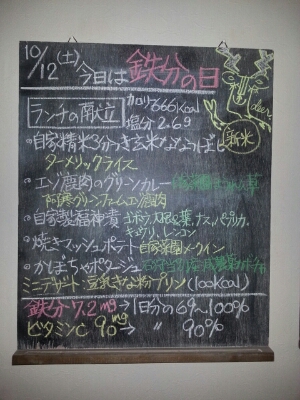 10/12(土)
今日は 鉄分の日
ランチの献立
カロリー 666kcal
塩分 2.6g
deer
新米
・自家精米3分つき玄米ななつぼし
ターメリックライス
・エゾ鹿肉のグリーンカレー
阿寒グリーンファーム エゾ鹿肉
・自家製福神漬 ゴボウ、大根&葉、ナス、パプリカ、
きゅうり、レンコン
・焼きマッシュポテト 自家菜園メークイン
・かぼちゃポタージュ
ミニデザート:豆乳きな粉プリン(100kcal)
鉄分 7.2mg→1日分の69~100%
ビタミンC 90mg→ 〃 90%